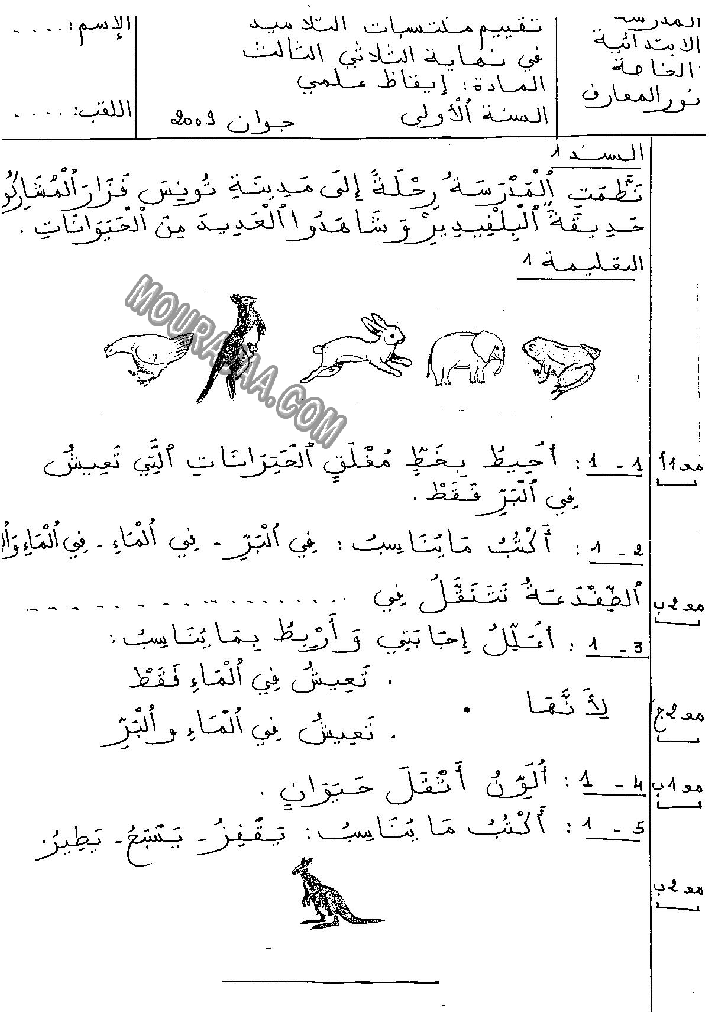 المدرسة
الابتدائية
الخاصة
نور المعارف
تقييم مكتسبات التلاميذ
في نهاية الثلاثي الثالث
المادة: إيقاظ علمي
السنة الأولى جوان 2009
الإسم: .....
اللقب: .....
السند 1
نَظَّمَتِ الْمَدْرَسَةُ رِحْلَةً إِلَى مَدِينَةِ تُونِسَ فَزَارَ الْمُشَارِكُو
حَدِيقَةَ الْبِلْفِيدِيرْ وَشَاهَدُوا الْعَدِيدَ مِنَ الْحَيَوَانَاتِ.
التعليمة 1
MOURAJAA.COM
1 - 1: أُحِيطُ بِخَطٍّ مُغْلَقٍ الْحَيَوَانَاتِ الَّتِي تَعِيشُ
فِي الْبَرِّ فَقَطْ.
مع 1 أ
1 - 2: أَكْتُبُ مَا يُنَاسِبُ: فِي الْبَرِّ - فِي الْمَاءِ - فِي الْمَاءِ وَالْ
الضِّفْدَعَةُ تَتَنَقَّلُ فِي ..................
مع 2 ب
1 - 3: أُعَلِّلُ إِجَابَتِي وَأَرْبِطُ بِمَا يُنَاسِبُ:
. تَعِيشُ فِي الْمَاءِ فَقَطْ
لِأَنَّهَا .
. تَعِيشُ فِي الْمَاءِ وَ الْبَرِّ
مع 2 ج
1 - 4: أُلَوِّنُ أَثْقَلَ حَيَوَانٍ.
مع 1 ب
1 - 5: أَكْتُبُ مَا يُنَاسِبُ: يَقْفِزُ - يَسْبَحُ - يَطِيرُ.
مع 2 ب